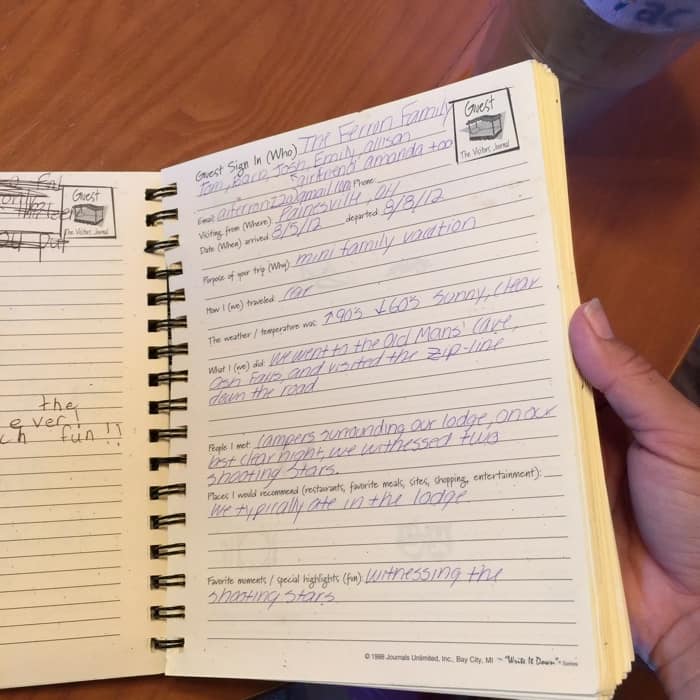 Guest
The Visitors Journal
the
ever!
fun!!
Guest
The Visitors Journal
Guest Sign In (Who) The Ferron Family
Tom, Barb, Josh, Emily, allison
girlfriend amanda too
Email: Phone:
Visiting from (Where): Painesville, OH
Date (When) arrived 8/5/12 departed 8/8/12
Purpose of your trip (Why) mini family vacation
How I (we) traveled: car
The weather / temperature was: ↑90s ↓60s sunny, clear
What I (we) did: We went to the Old Mans' Cave,
Ash Falls, and visited the zip-line
down the road
People I met: Campers surrounding our lodge, on our
last clear night, we witnessed two
shooting stars.
Places I would recommend (restaurants, favorite meals, sites, shopping, entertainment):
We typically ate in the lodge
Favorite moments / special highlights (fun): Witnessing the
shooting stars
© 1998 Journals Unlimited, Inc., Bay City, MI ~ "Write It Down" ® Series